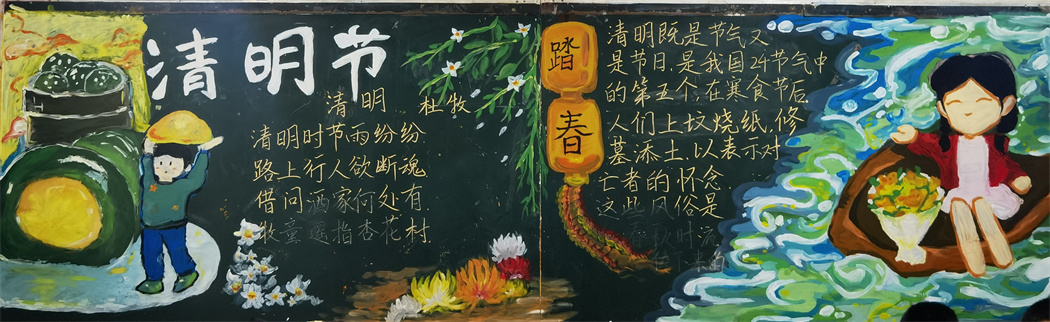 清明节
清明 杜牧
清明时节雨纷纷
路上行人欲断魂
借问酒家何处有
牧童遥指杏花村
踏
春
清明既是节气又
是节日,是我国24节气中
的第五个,在寒食节后
人们上坟烧纸,修
墓添土,以表示对
亡者的怀念
这些风俗是
秋时流